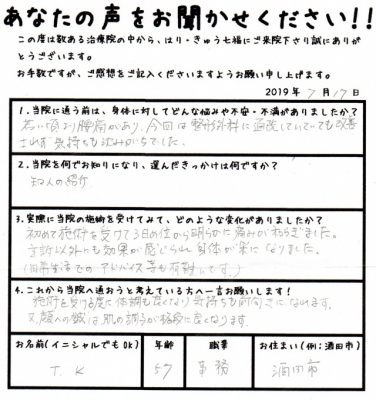 あなたの声をお聞かせください!!
この度は数ある治療院の中から、はり・きゅう七福にご来院下さり誠にありが
とうございます。
お手数ですが、ご感想をご記入くださいますようお願い申し上げます。
2019年 7月 17日
1.当院に通う前は、身体に対してどんな悩みや不安・不満がありましたか?
若い頃より腰痛があり、今回は整形外科に通院していても改善
されず気持ちも沈みがちでした。
2.当院を何でお知りになり、選んだきっかけは何ですか?
知人の紹介
3.実際に当院の施術を受けてみて、どのような変化がありましたか?
初めて施術を受けて3日の位から明らかに痛みがやわらぎました。
主訴以外にも効果が感じられ身体が楽になりました。
(日常生活でのアドバイス等も有難いです。)
4.これから当院へ通おうと考えている方へ一言お願いします!
施術を受ける度に体調も良くなり気持ちも前向きになれます。
又、顔への鍼は肌の調子が格段に良くなります。
お名前(イニシャルでもOK) 年齢 職業 お住まい(例:酒田市)
T.K 57 事務 酒田市